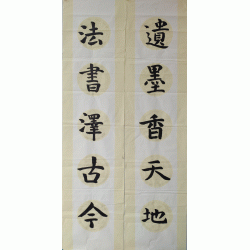 遺墨香天地
法書澤古今